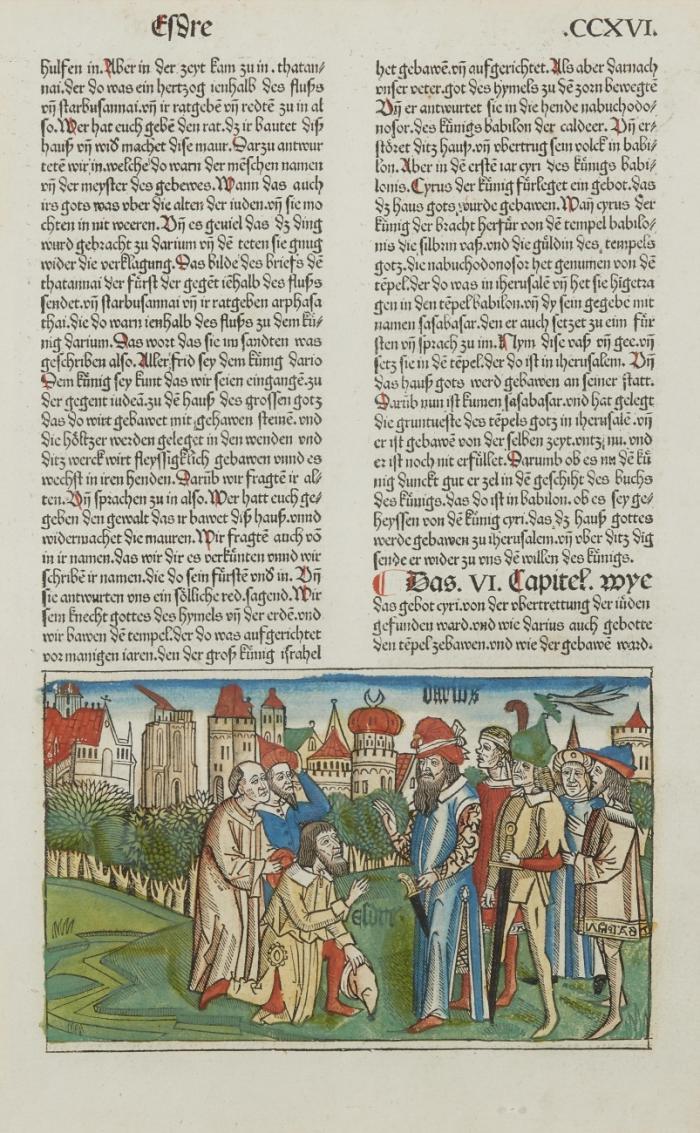 Esdre
.CCXVI.
hulfen in. Aber in der zeyt kam zu in. thatan⸗
nai. der do was ein hertzog ienhalb des flußs
vñ starbusannai. vñ ir ratgebẽ vñ redtẽ zu in al
so. Wer hat euch gebẽ den rat. dz ir bautet diß
hauß vñ wid machet dise maur. Darzu antwur
tetẽ wir in. welche do warn der mẽschen namen
vñ der meyster des gebewes. Wann das auch
irs gots was vber die alten der iuden. vñ sie mo
chten in nit weeren. Vñ es geuiel das dz ding
wurd gebracht zu darium vñ dẽ teten sie gnug
wider die verklagung. Das bilde des briefs dẽ
thatannai der fürst der gegẽt iẽhalb des flußs
sendet. vñ starbusannai vñ ir ratgeben arphasa
thai. die do warn ienhalb des flußs zu dem kü⸗
nig darium. Das wort das sie im sandten was
geschriben also. Aller frid sey dem künig dario
Dem künig sey kunt das wir seien eingangẽ. zu
der gegent iudeã. zu dẽ hauß des grossen gotz
das do wirt gebawet mit gehawen steinẽ. vnd
die höltzer werden geleget in den wenden vnd
ditz werck wirt fleyssigklich gebawen vnnd es
wechst in iren henden. Darüb wir fragtẽ ir al⸗
ten. Vñ sprachen zu in also. Wer hatt euch ge⸗
geben den gewalt das ir bawet diß hauß. vnnd
widermachet die mauren. Wir fragtẽ auch võ
in ir namen. das wir dir es verkünten vnnd wir
schribẽ ir namen. die do sein fürstẽ vnd in. Vñ
sie antwurten vns ein söliche red. sagend. Wir
sein knecht gottes des hymels vñ der erdẽ. vnd
wir bawen dẽ tempel. der do was aufgerichtet
vor manigen iaren. den der groß künig israhel
het gebawẽ. vñ aufgerichtet. Als aber darnach
vnser veter. got des hymels zu dẽ zorn bewegtẽ
Vñ er antwurtet sie in die hende nabuchodo⸗
nosor. des künigs babilon der caldeer. Vñ er⸗
störet ditz hauß. vñ vbertrug sein volck in babi⸗
lon. Aber in dẽ erstẽ iar cyri des künigs babi⸗
lonis. Cyrus der künig fürleget ein gebot. das
dz haus gots wurde gebawen. Wañ cyrus der
künig der bracht herfür von dẽ tempel babilo⸗
nis die silbrin vaß. vnd die güldin des tempels
gotz. die nabuchodonosor het genumen von dẽ
tẽpel. der do was in iherusalẽ vñ het sie hĩgetra
gen in den tẽpel babilon. vñ dy sein gegebẽ mit
namen sasabasar. den er auch setzet zu eim für
sten vñ sprach zu im. Nym dise vaß vñ gee. vñ
setz sie in dẽ tẽpel. der do ist in iherusalem. Vñ
das hauß gots werd gebawen an seiner statt.
Darüb nun ist kumen sasabasar. vnd hat gelegt
die gruntueste des tẽpels gotz in iherusalẽ. vñ
er ist gebawẽ von der selben zeyt. vntz nu. vnd
er ist noch nit erfüllet. Darumb ob es nu dẽ kü
nig dunckt gut er zel in dẽ geschiht des buchs
des künigs. das do ist in babilon. ob es sey ge⸗
heyssen von dẽ künig cyri. das dz hauß gottes
werde gebawen zu iherusalem. vñ vber ditz dig
sende er wider zu vns dẽ willen des künigs.
Das. VI. Capitel. wye
das gebot cyri. von der vbertrettung der iüden
gefunden ward. vnd wie darius auch gebotte
den tẽpel zebawen. vnd wie der gebawẽ ward.
darius
esdre